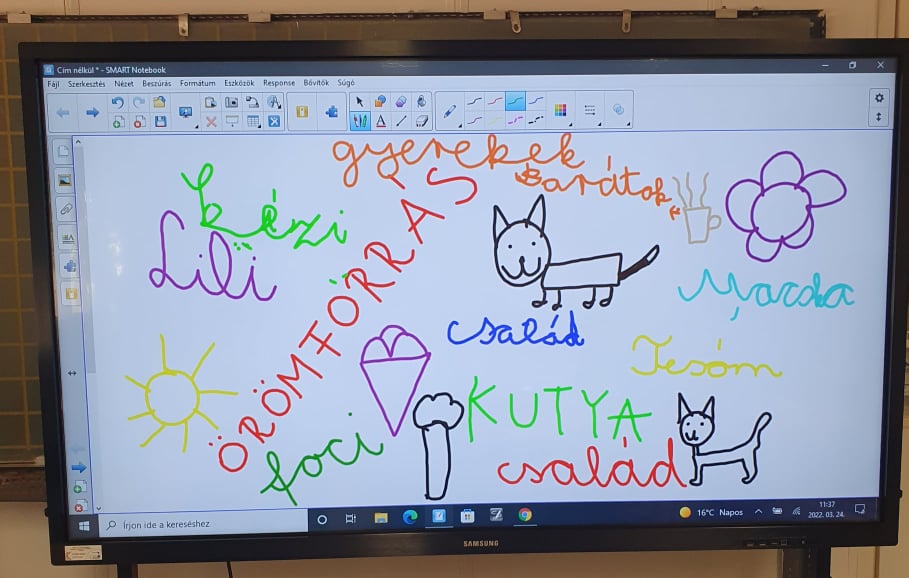 Cím nélkül * - SMART Notebook
Fájl Szerkesztés Nézet Beszúrás Formátum Eszközök Response Bővítők Súgó
gyerekek
Barátok
Kézi
Lili
ÖRÖMFORRÁS
Macska
család
Tesóm
KUTYA
foci
család
Írjon ide a kereséshez
16°C Napos
11:37
2022. 03. 24.
SAMSUNG